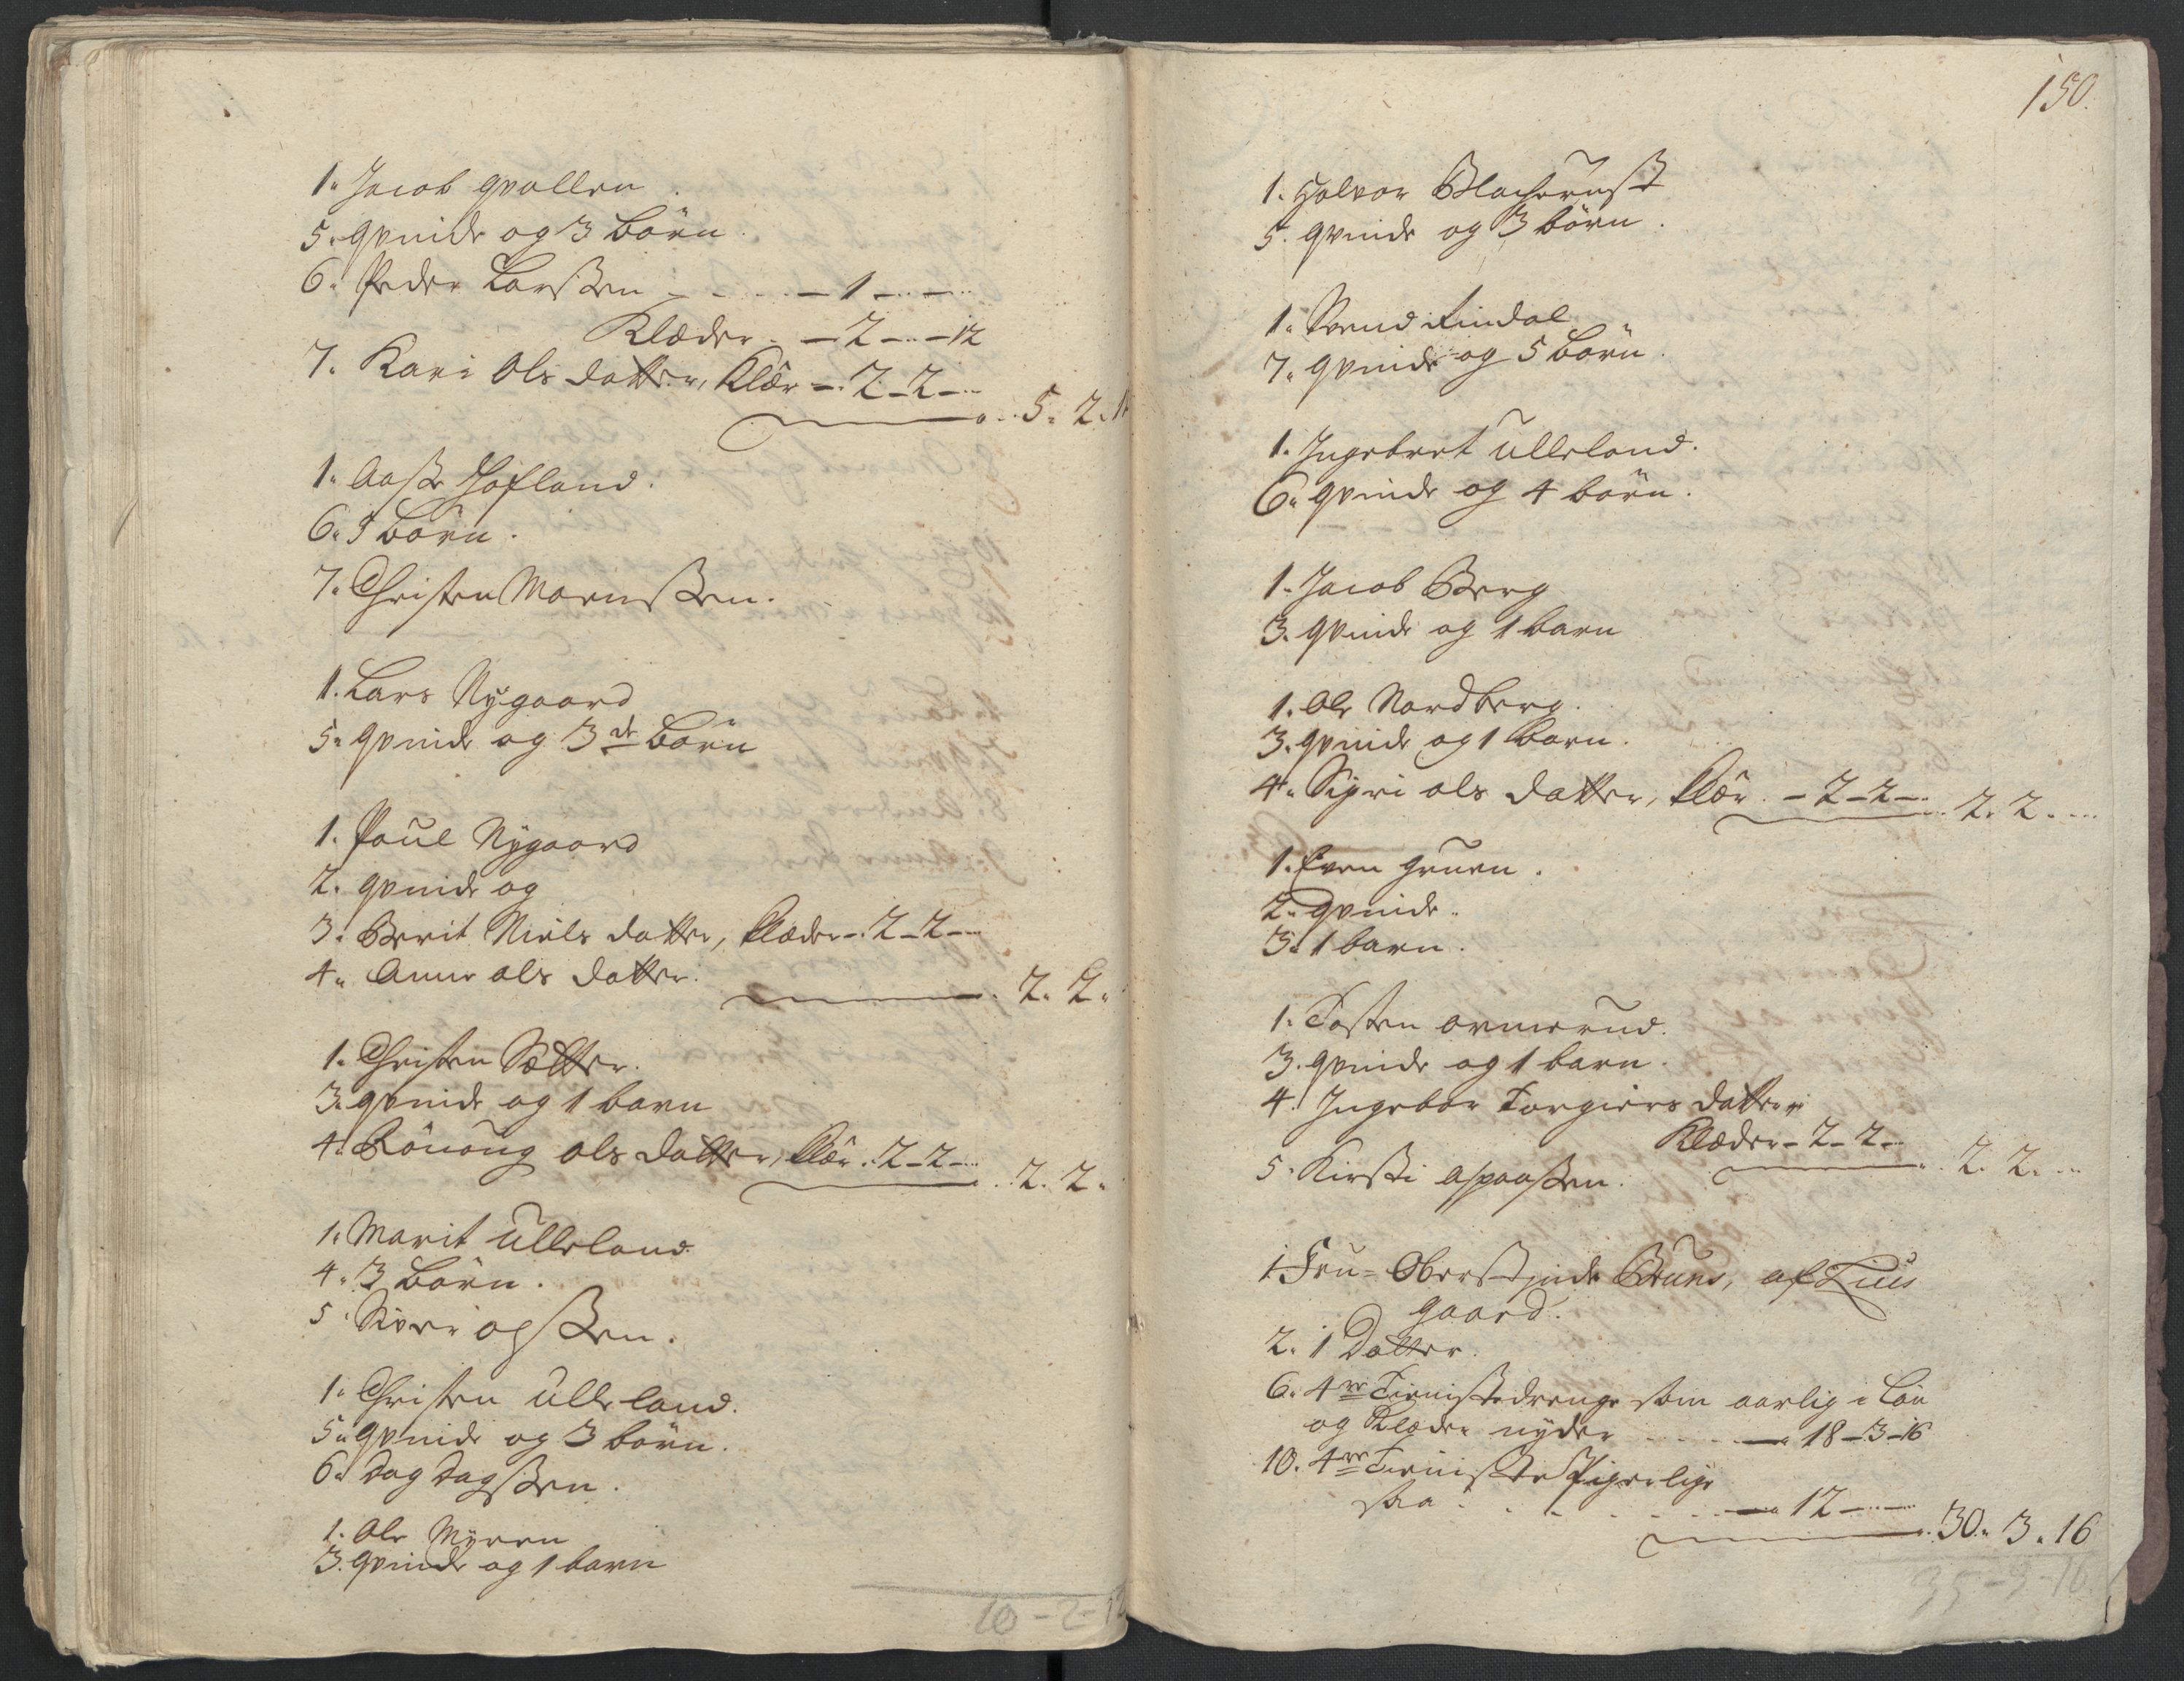 1. Jacob qvallen
5. qvinde og 3 Börn.
6. Peder Larssen - - - - 1 - -
Klæder - 2 - - 12
7. Kari Ols datter, Klær - 2 - 2 -
5. 2. 1
1. Aasse Hofland.
6. 5 Börn.
7. Christen Morenssen.
1. Lars Nygaard
5. qvinde og 3de Börn
1. Poul Nygaard
2. qvinde og
3. Berit Niels datter, Klæder - 2 - 2 -
4. Anne ols datter.
2. 2.
1. Christen Sætter.
3. qvinde og 1 barn
4. Rönoug ols datter, klær. 2 - 2 -
2. 2.
1. Marit Ulleland.
4. 3 Börn.
5. Siver olssen.
1. Christen Ulleland.
5. qvinde og 3 börn.
6. Dag Dagssen.
1. Ole Myren
3. qvinde og 1 barn
10 - 2 - 12
150.
1. Halvor
5. qvinde og 3 börn.
1. Svend Lindal
7. qvinde og 5 börn.
1. Ingebret Ulleland.
6. qvinde og 4 börn.
1. Jacob Berg
3. qvinde og 1 barn
1. Ole Nordberg.
3. qvinde og 1 barn.
4. Sigri ols datter, klær. - 2 - 2 -
2. 2.
1. Even gruen.
2. qvinde.
3. 1 barn.
1. Tosten ormerud.
3. qvinde og 1 barn.
4. Ingebor Torgiers datter
Klæder - 2 - 2 -
2. 2.
5. Kirsti
1 Fru Oberstinde Bruns, af
gaard.
2. 1 Datter.
6. 4re Tienistedrenge som aarlig i Lön
og Klæder nyder - - - 18 - 3 - 16
10. 4re Tieniste Piger lige
saa - - - - 12 - -
30. 3. 16
35 - 3 - 16